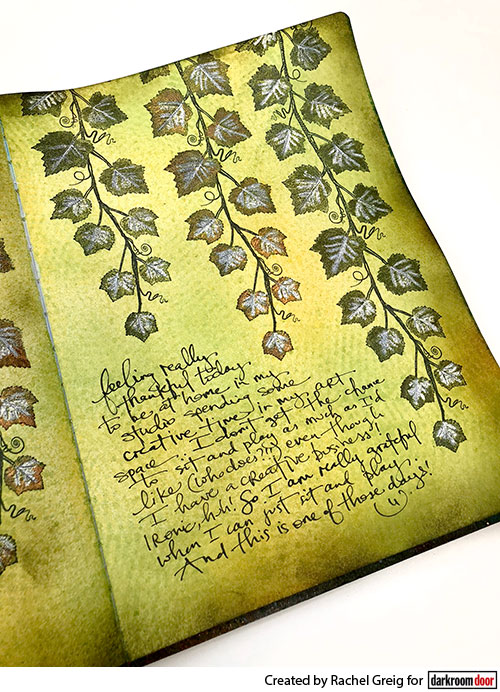 feeling really
thankful today
to be at home in my
studio spending some
creative time in my art
space. I don't get the chance
to sit and play as much as I'd
like (who does?!) even though
I have a creative business!
Ironic, huh! So I am really grateful
when I can just sit and play.
And this is one of those days!
Created by Rachel Greig for darkroomdoor